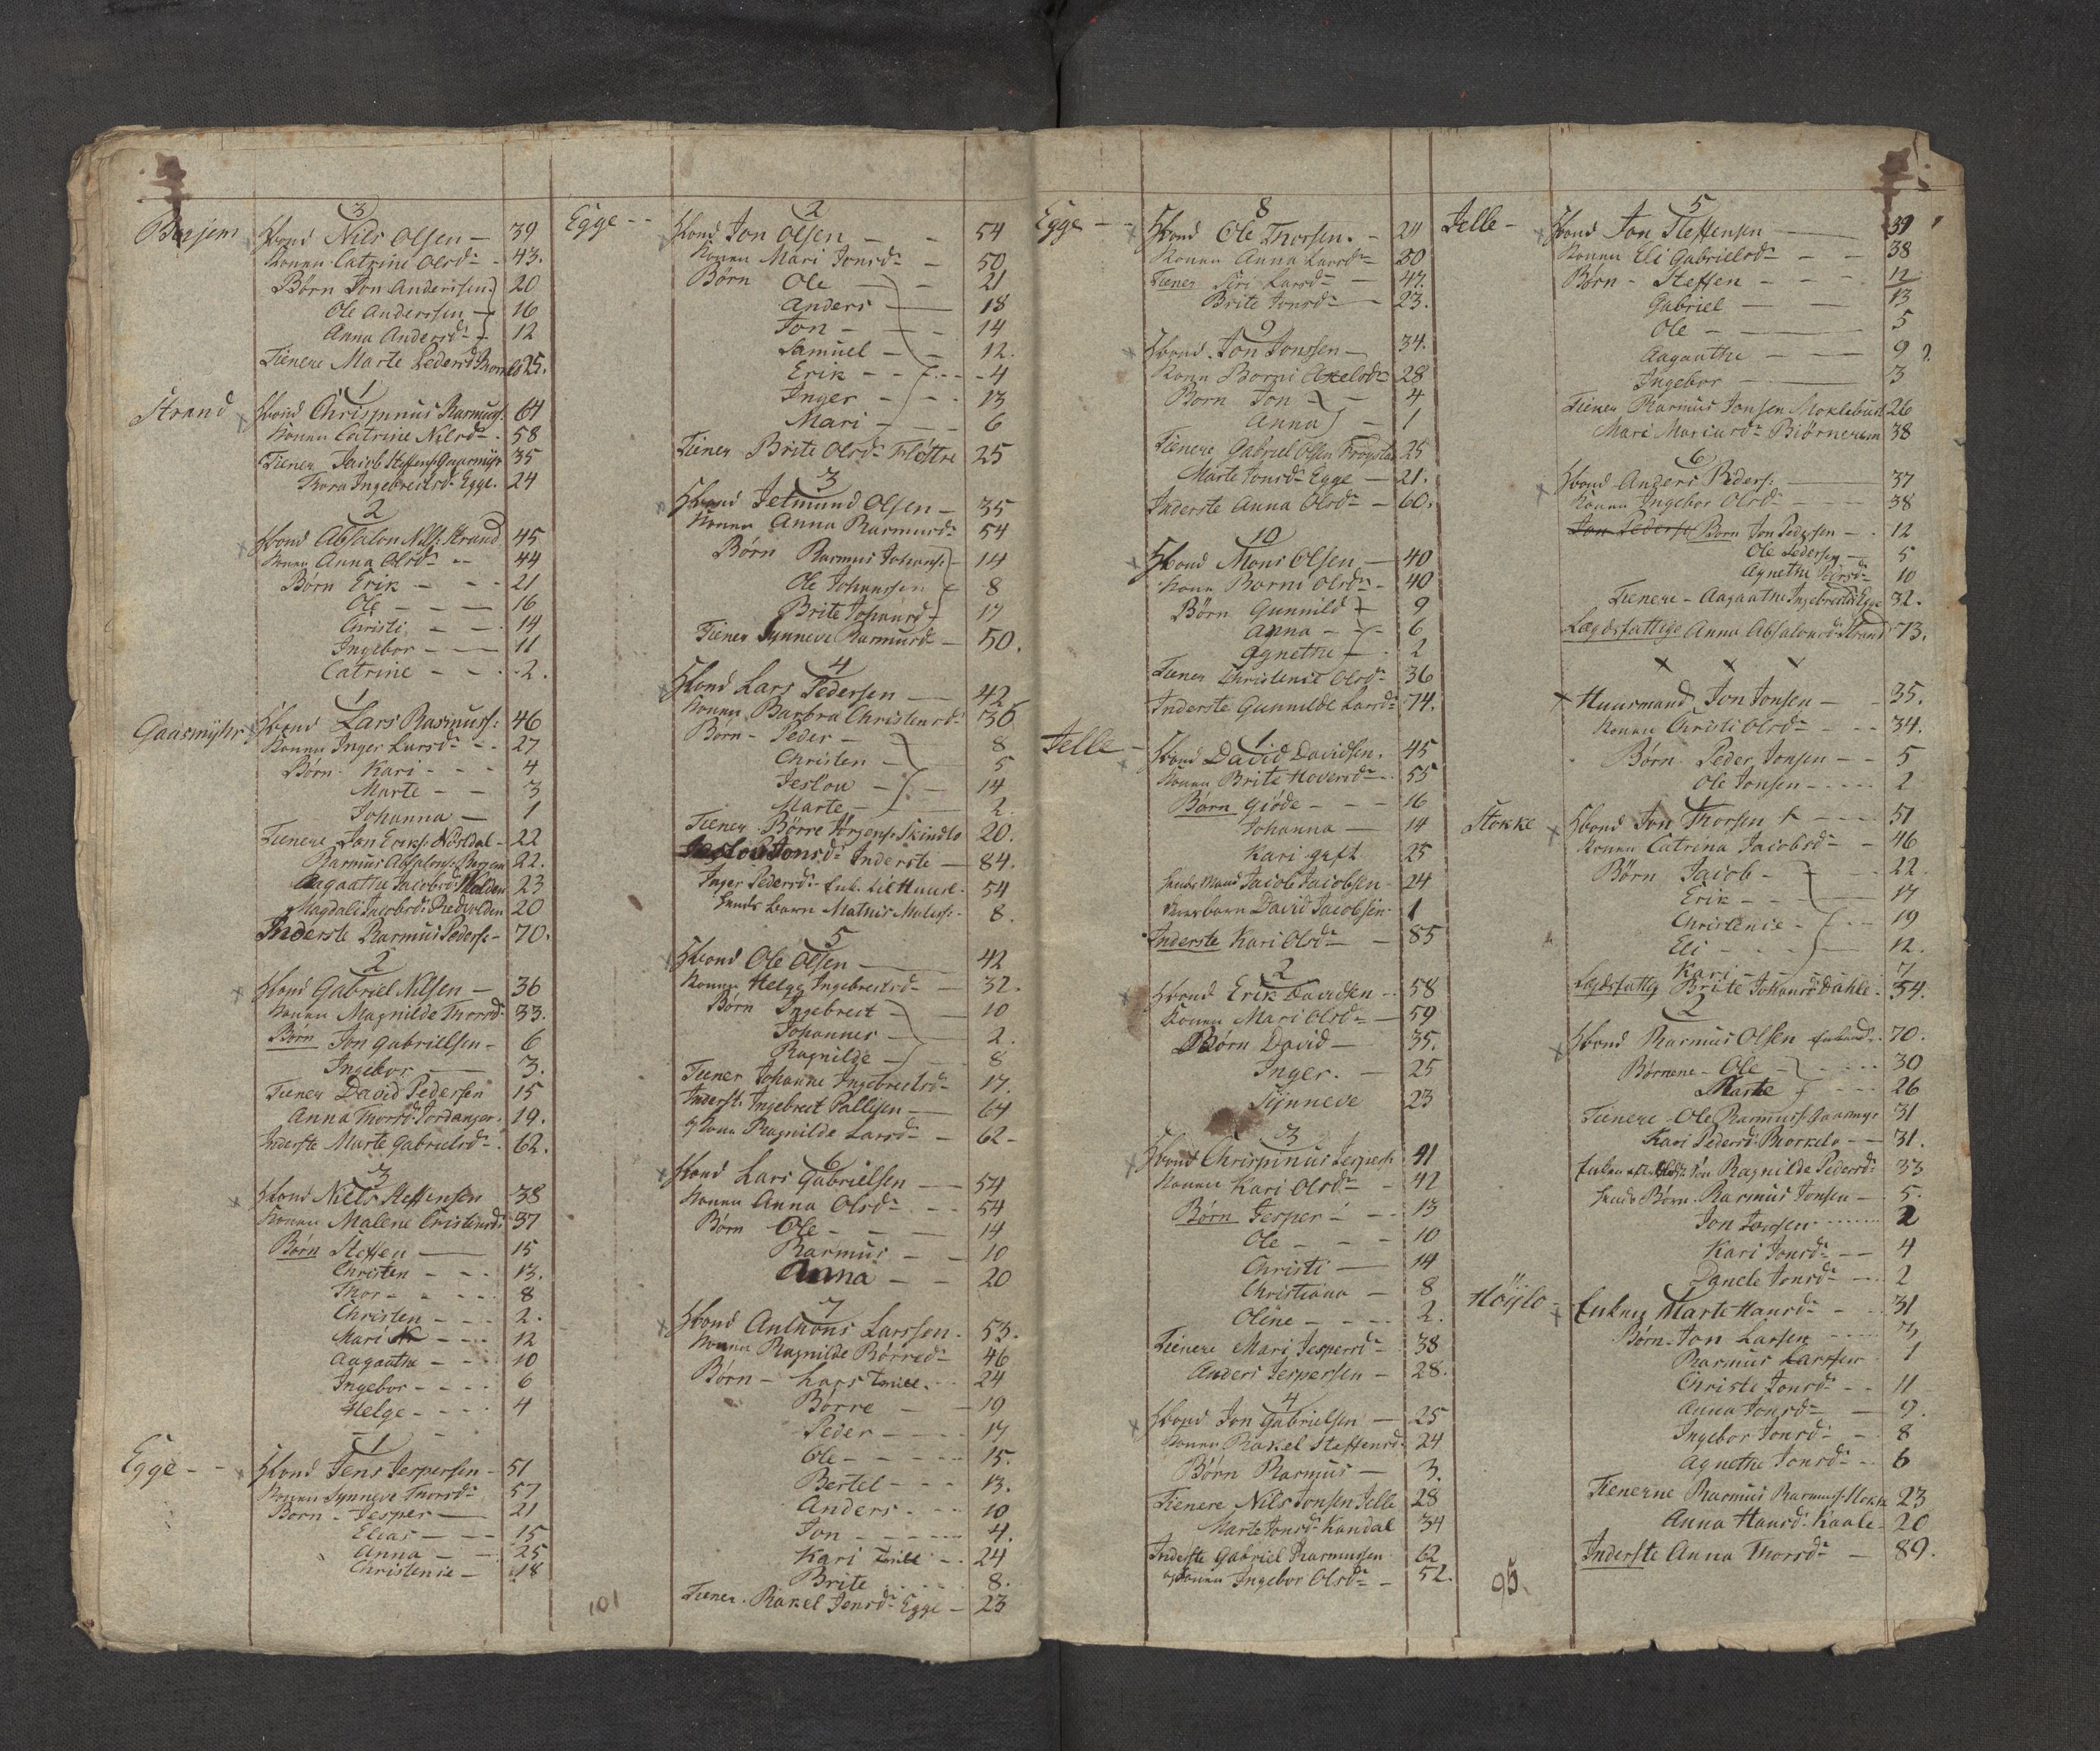 3
Hbond Nils Olsen - 39
Konen Catrine Olsd. - 43.
Børn Jon Anderssen 20
Ole Anderssen 16
Anna Andersd. 12
Tienere Marte Pedersd. 25.
Strand
1
Hbond Chrispinus Rasmuss. 64
Konen Catrine Nilsd. 58
Tiener Jacob Steffens. Gaasmyr 35
Thora Ingebrectsd. Egge. 24
2
Hbond Absalon Nills. Strand 45
Konen Anna Olsd. - 44
Børn Erik - - - 21
Ole - - - 16
Christi - - 14
Ingebor - - 11
Catrine - - - 2.
Gaasmyhr
1
Hbond Lars Rasmuss: 46
Konen Inger Larsd. - - 27
Børn Kari - - - 4
Marte - - 3
Johanna - 1
Tienere Jon Eriks. Nordal - 22
Rasmus Absalons. Berjem 22.
Aagaathe Jacobsd. Molden 23
Magdali Jacobsd. Redvolden 20
Inderste Rasmus Peders. - 70.
2
Hbond Gabriel Nilsen - 36
Konen Magnilde Thorsd. 33.
Børn Jon Gabrielsen - 6
Ingebor - 3.
Tiener David Pedersen 15
Anna Thorsd. Jordanger. 19.
Inderste Marte Gabrielsd. 62.
3
Hbond Niels Steffensen 38
Konen Malene Cristensd. 37
Børn Steffen - 15
Christen - - - 13.
Thor - - - - 8
Christen - - - 2.
Mari - - - 12
Aagaathe - - - 10
Ingebor - - - - 6
Helge - - - - 4
Egge - -
1
Hbond Jens Jespersen - 51
Konen Synneve Thorsd. 57
Børn - Jesper - 21
Elias - - - 15
Anna - - 25
Christenie - 18
Egge - -
2
Hbond Jon Olsen - - 54
Konen Mari Jonsd. - 50
Børn Ole - - 21
Anders - 18
Jon - - - 14
Samuel - - 12.
Erik - - - - 4
Inger - - - 13
Mari - - - 6
Tiener Brite Olsd. Fløttre 25
3
Hbond Jetmund Olsen - 35
Konen Anna Rasmusd. 54
Børn Rasmus Johans: 14
Ole Johanssen 8
Brite Johansd. 17
Tiener Synneve Rasmusd. - 50.
4
Hbond Lars Pedersen - 42
Konen Barbra Christensd. 36
Børn - Peder - 8
Christen - 5
Jeslou - - 14
Marte - 2.
Tiener Børre Jørgens. Skindlo 20.
Jeslou Jonsd. Inderste - 84.
Inger Pedersd. Enk. til Huuse. 54
hends barn Mathis Mules. 8.
5
Hbond Ole Olsen - 42
Konen Helge Ingebrectsd. - 32.
Børn Ingebrect - 10
Johannes - 2.
Ragnilde - 8
Tiener Johanne Ingebrectsd. 17.
Inderst. Ingebrect Pallesen - 64
Kone Ragnilde Larsd. - 62-
6
Hbond Lars Gabrielsen - 54
Konen Anna Olsd. - - 54
Børn Ole - - - 14
Rasmus - - 10
Anna - - 20
7
Hbond Anthons Larssen - 53.
Konen Ragnilde Børresd. 46
Børn - Lars Tville. - - 24
Børre - 19
Peder - - - 17
Ole - - - - 15.
Bertel - - - 13.
Anders - - - 10
Jon - - - - 4.
Kari Tville - - 24
Brite - - - 8.
Tiener. Rakel Jensd. Egge - 23
101
Egge - -
8
Hbond Ole Thorsen. - 24
Konen Anna Larsd. 50
Tiener Siri Larsd. - 47.
Brite Jonsd. - 23.
9
Hbond Jon Jonssen - 34.
Konen Borni Axelsd. 28
Børn Jon - - 4
Anna - 1
Tienere Gabriel Olsen 25
Marte Jonsd. Egge - 21.
Inderste Anna Olsd. - 60.
10
Hbond Mons Olsen - 40
Kone Borni Olsd. - 40
Børn Gunnild 9
Anna - - 6
Agnethe - 2
Tiener Christence Olsd. 36
Inderste Gunnilde Larsd. 74.
Jelle -
1
Hbond David Davidsen. 45
Konen Brite Hovensd. - 55
Børn Giøde - - - 16
Johanna - 14
Kari gift 25
hendes Mand Jacob Jacobsen - 24
David Jacobsen 1
Inderste Kari Olsd. - 85
2
Hbond Erik Davidsen - 58
Konen Mari Olsd. - 59
Børn David - 35.
Inger. - 25
Synneve 23
3
Hbond Chrispinus Jespers. 41
Konen Kari Olsd. - 42
Børn Jesper - - 13
Ole - - - 10
Christi - 14
Christiana - 8
Oline - - - 2.
Tienere Mari Jespersd. 38
Anders Jespersen - 28.
4
Hbond Jon Gabrielsen - 25
Konen Rakel Steffensd. 24
Børn Rasmus - 3.
Tienere Nils Jonsen Jelle 28
Marte Jonsd. Kandal 34
Inderste Gabriel Rasmussen 62
Konen Ingebor Olsd. - 52.
Jelle -
5
Hbond Jon Steffensen - 39
Konen Eli Gabrielsd. - - 38
Børn - Steffen - - 12
Gabriel - 13
Ole - - 5
Aagaathe - - 9
Ingebor - 3
Tiener Rasmus Jonsen Moklebust 26
Mari Mariusd. Biørnerem 38
6
Hbond Anders Peders: - 37
Konen Ingebor Olsd. - 38
Jon Pederse Børn Jon Pedersen - 12
Ole Pedersen - 5
Agnethe Pedersd. 10
Tienere - Aagaathe Ingebrectsd. Egge 32.
Lægdsfattige Anna Absalonsd. Strand 73.
Huusmand Jon Jonsen - 35.
Konen Christi Olsd. - - 34.
Børn Peder Jonsen - - 5
Ole Jonsen - - - 2
Stokke
Hbond Jon Thorsen - - - 51
Konen Catrina Jacobsd. - 46
Børn Jacob - - - 22.
Erik - - - 17
Christenie - - - 19
Eli - - - 12.
Kari - - 7
Lægdsfattig Brite Johansd. Dahle. 54.
2
Hbond Rasmus Olsen Enkemd. 70.
Børnene - Ole - - - 30
Marte - - - 26
Tienere - Ole Rasmuss. Gaasmyr 31
Kari Pedersd. Morkelo - - 31.
Ragnilde Pedersd. 33
hends Børn. Rasmus Jonsen - 5.
Jon Jonsen - - - 2
Kari Jonsd. - - 4
Danele Jonsd. - - 2
Höijlo -
Enken Marte Hansd. - - 31
Børn. Jon Larsen - - - 3
Rasmus Larssen 1
Christi Jonsd. - - 11
Anna Jonsd. - 9.
Ingebor Jonsd. - 8
Agnethe Jonsd. - - 6
Tienerne Rasmus Rasmuss. Stokk 23
Anna Hansd. Kaale - 20
Inderste Anna Thorsd. - 89.
95.